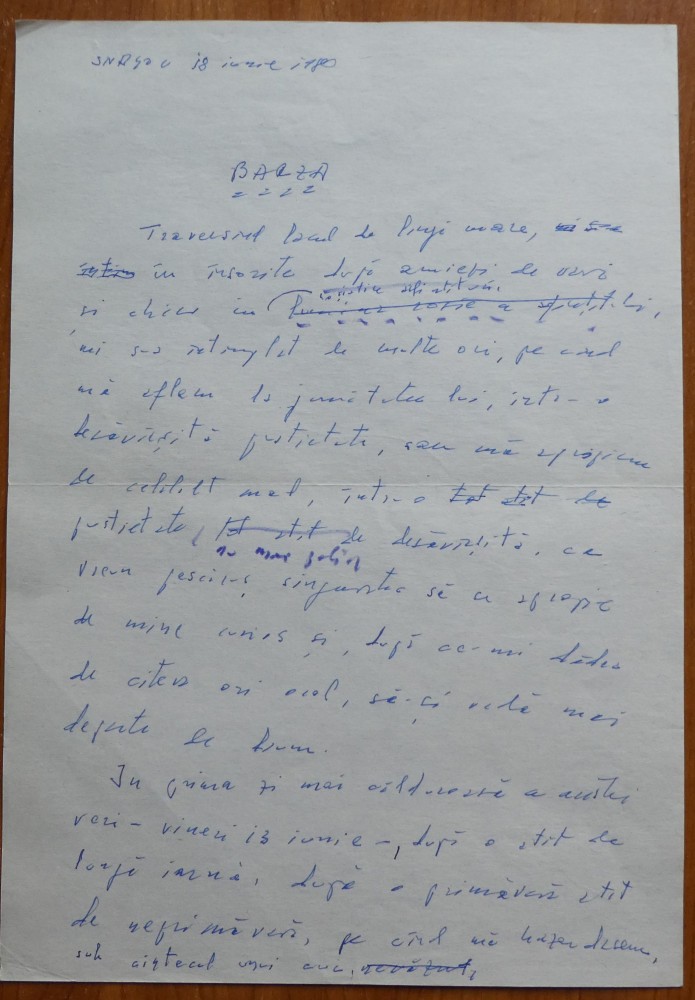 SNAGOV 18 iunie 1980
BARZA
Traversînd lacul de lîngă mare,
în însorite după amieze de vară
și chiar in
mi s-a întîmplat de multe ori, pe cînd
mă aflam la jumătatea lui, într-o
desăvîrșită pustietate, sau mă apropiam
de celălalt mal, într-o
pustietate de desăvîrșită, ca
vreun pescăruș singuratic să se apropie
de mine curios și, după ce-mi dădea
de cîteva ori ocol, să-și vadă mai
departe de drum.
In prima zi mai călduroasă a acestei
veri – vineri 13 iunie –, după o atît de
lungă iarnă, după o primăvară atît
de neprimăvară, pe cînd mă
sub cîntecul unui cuc, nevăzut,